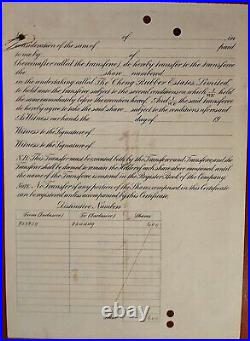 of
in consideration of the sum of paid
to me by of
(hereinafter called the Transferee) do hereby transfer to the Transferee
the share numbered
in the undertaking called The Cheng Rubber Estates, Limited,
to hold unto the Transferee subject to the several conditions on which held
the same immediately before the execution hereof. And the said Transferee
do hereby agree to take the said share subject to the conditions aforesaid.
As Witness our hands the day of 19
Witness to the Signature of
Witness to the Signature of
N.B. This Transfer must be executed both by the Transferor and Transferee, and the
Transferor shall be deemed to remain the Holder of such share above mentioned until
the name of the Transferee is entered in the Register Book of the Company.
Note. No Transfer of any portion of the Shares comprised in this Certificate
can be registered unless accompanied by this Certificate.
Distinctive Numbers
From (Inclusive) To (Inclusive) Shares